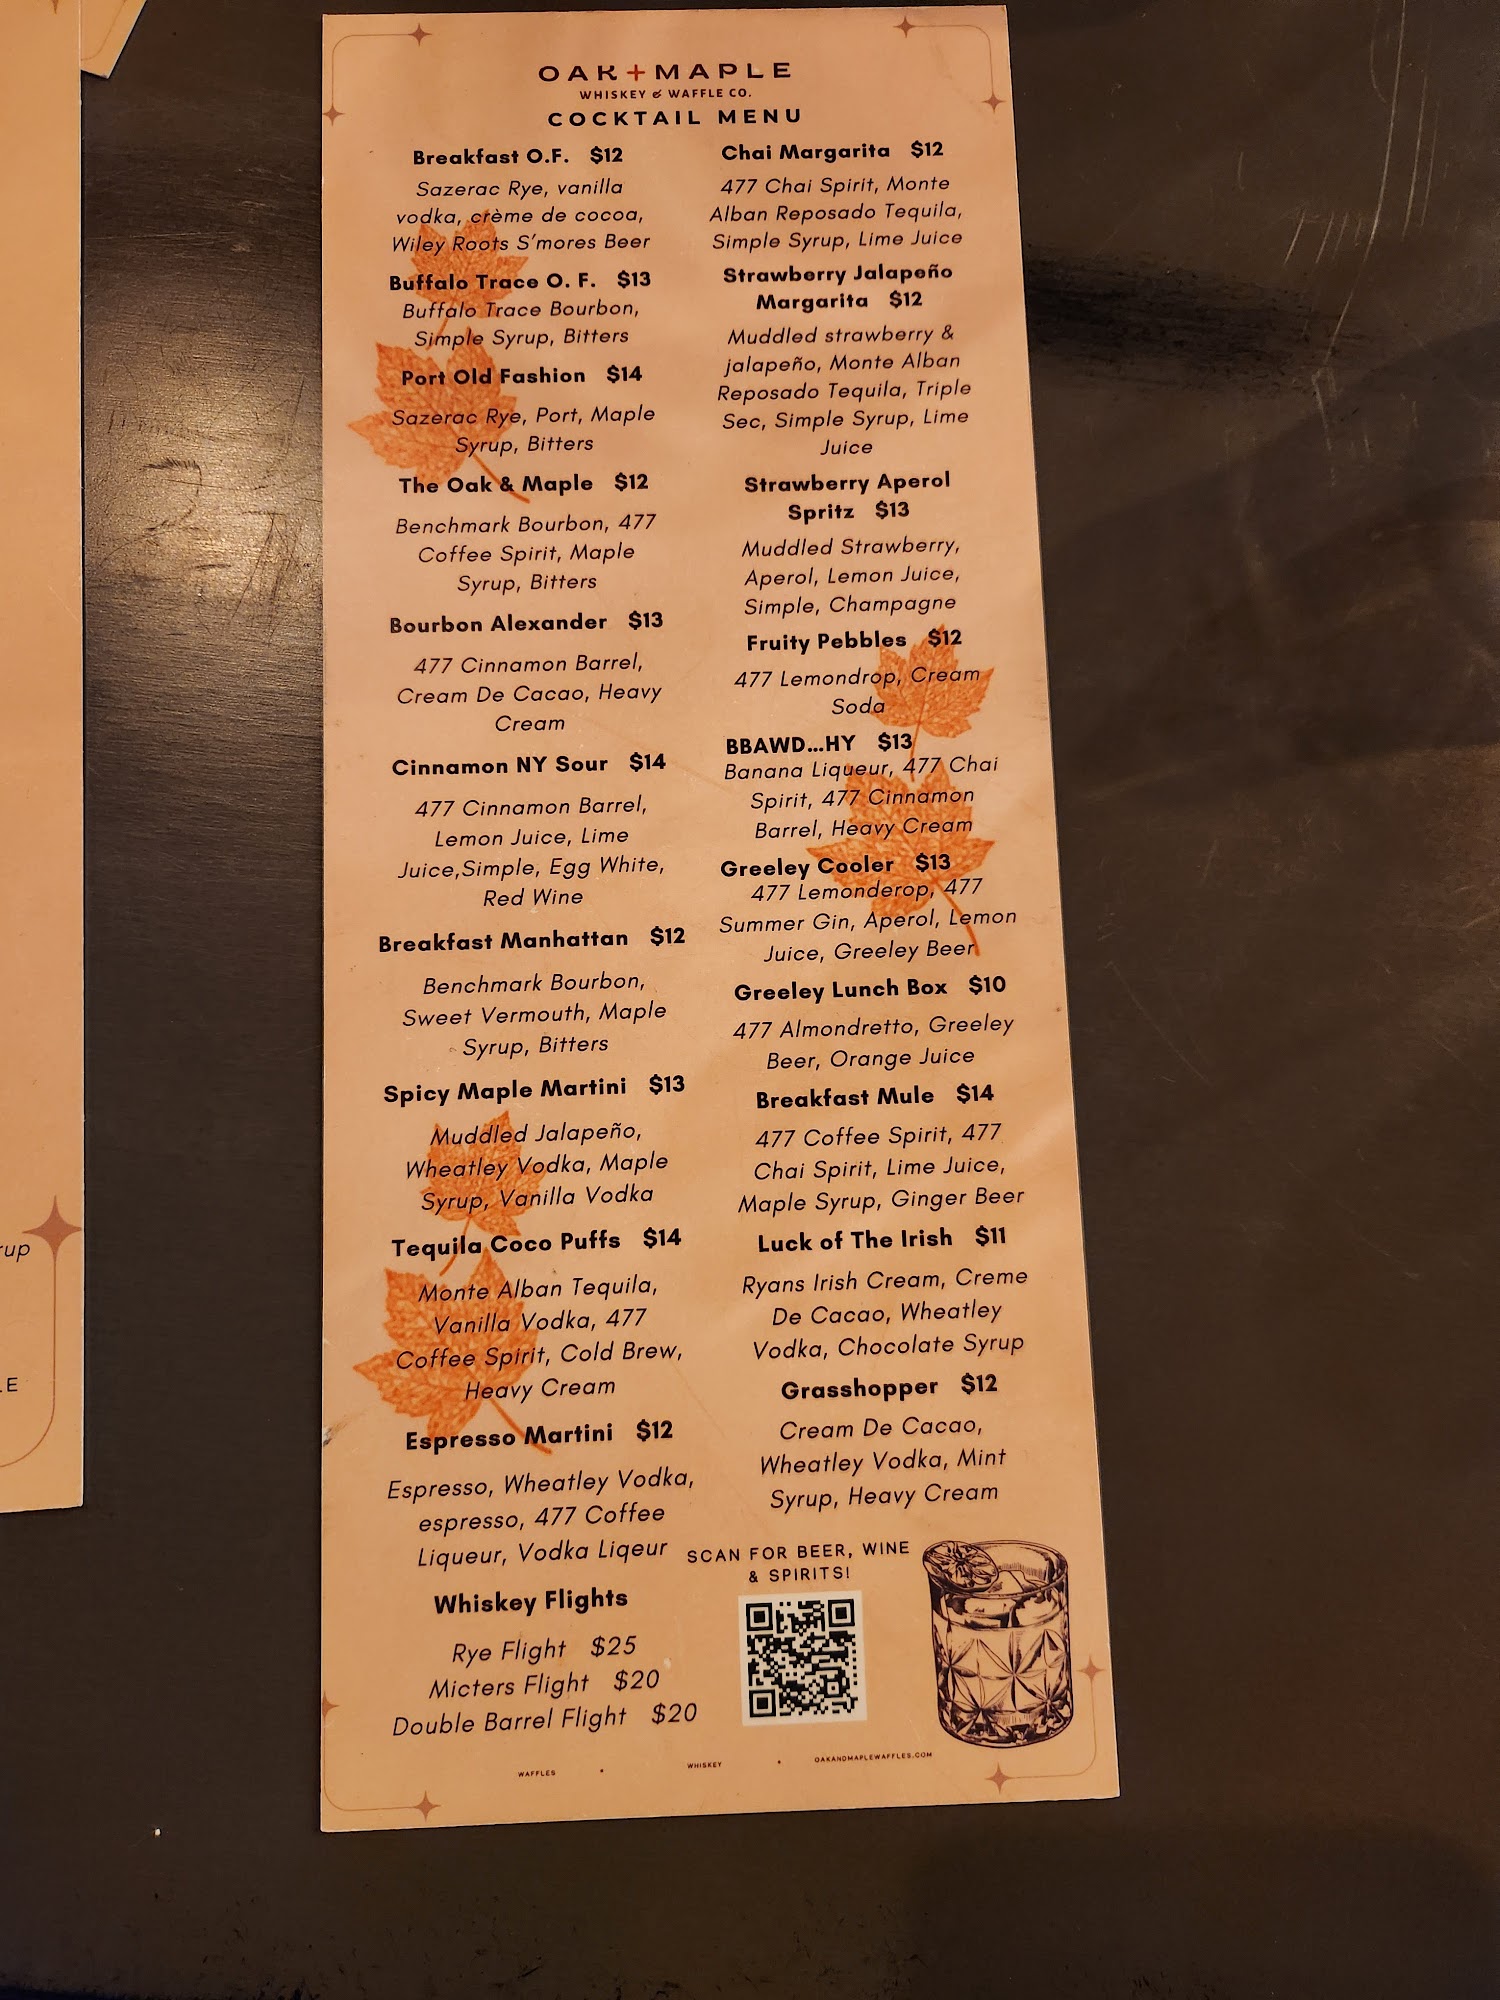 OAK+MAPLE
WHISKEY & WAFFLE CO.
COCKTAIL MENU
Breakfast O.F. $12
Sazerac Rye, vanilla
vodka, crème de cocoa,
Wiley Roots S'mores Beer
Buffalo Trace O. F. $13
Buffalo Trace Bourbon,
Simple Syrup, Bitters
Port Old Fashion $14
Sazerac Rye, Port, Maple
Syrup, Bitters
The Oak & Maple $12
Benchmark Bourbon, 477
Coffee Spirit, Maple
Syrup, Bitters
Bourbon Alexander $13
477 Cinnamon Barrel,
Cream De Cacao, Heavy
Cream
Cinnamon NY Sour $14
477 Cinnamon Barrel,
Lemon Juice, Lime
Juice,Simple, Egg White,
Red Wine
Breakfast Manhattan $12
Benchmark Bourbon,
Sweet Vermouth, Maple
Syrup, Bitters
Spicy Maple Martini $13
Muddled Jalapeño,
Wheatley Vodka, Maple
Syrup, Vanilla Vodka
Tequila Coco Puffs $14
Monte Alban Tequila,
Vanilla Vodka, 477
Coffee Spirit, Cold Brew,
Heavy Cream
Espresso Martini $12
Espresso, Wheatley Vodka,
espresso, 477 Coffee
Liqueur, Vodka Liqeur
Whiskey Flights
Rye Flight $25
Micters Flight $20
Double Barrel Flight $20
Chai Margarita $12
477 Chai Spirit, Monte
Alban Reposado Tequila,
Simple Syrup, Lime Juice
Strawberry Jalapeño
Margarita $12
Muddled strawberry &
jalapeño, Monte Alban
Reposado Tequila, Triple
Sec, Simple Syrup, Lime
Juice
Strawberry Aperol
Spritz $13
Muddled Strawberry,
Aperol, Lemon Juice,
Simple, Champagne
Fruity Pebbles $12
477 Lemondrop, Cream
Soda
BBAWD...HY $13
Banana Liqueur, 477 Chai
Spirit, 477 Cinnamon
Barrel, Heavy Cream
Greeley Cooler $13
477 Lemonderop, 477
Summer Gin, Aperol, Lemon
Juice, Greeley Beer
Greeley Lunch Box $10
477 Almondretto, Greeley
Beer, Orange Juice
Breakfast Mule $14
477 Coffee Spirit, 477
Chai Spirit, Lime Juice,
Maple Syrup, Ginger Beer
Luck of The Irish $11
Ryans Irish Cream, Creme
De Cacao, Wheatley
Vodka, Chocolate Syrup
Grasshopper $12
Cream De Cacao,
Wheatley Vodka, Mint
Syrup, Heavy Cream
SCAN FOR BEER, WINE
& SPIRITS!
WAFFLES • WHISKEY • OAKANDMAPLEWAFFLES.COM